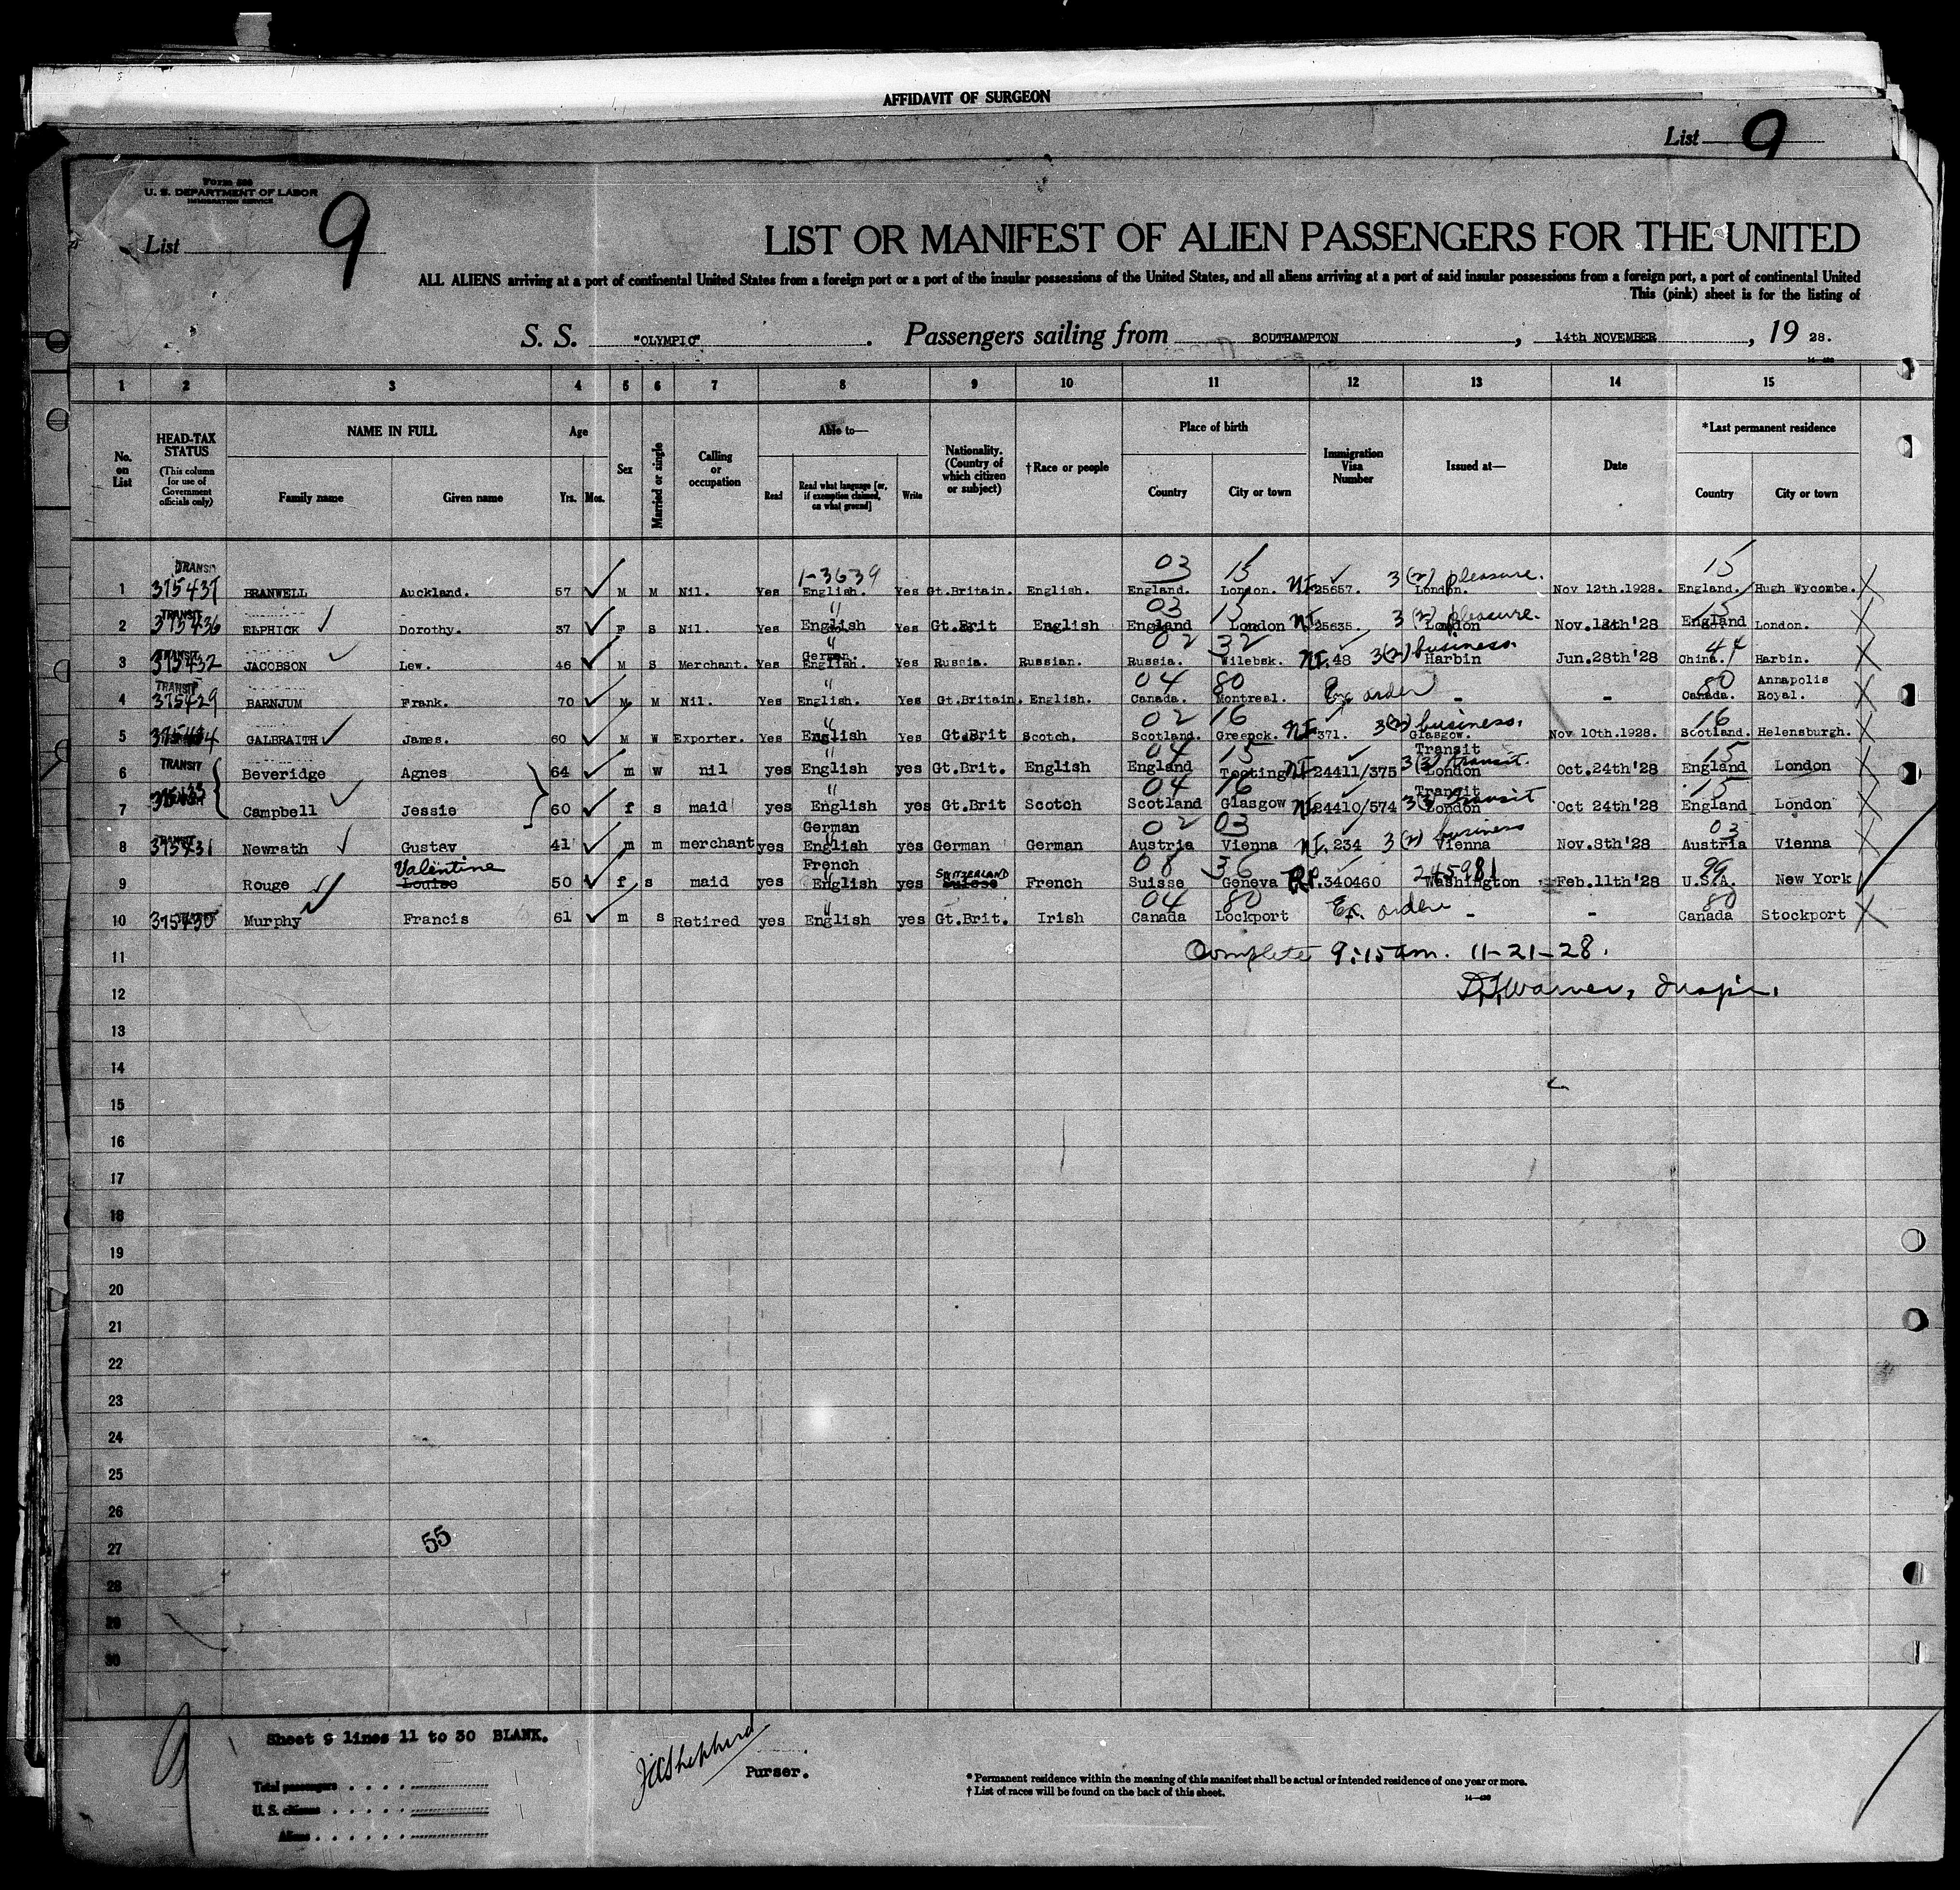 AFFIDAVIT OF SURGEON
List 9
Form 500
U. S. DEPARTMENT OF LABOR
IMMIGRATION SERVICE
List 9
LIST OR MANIFEST OF ALIEN PASSENGERS FOR THE UNITED
ALL ALIENS arriving at a port of continental United States from a foreign port or a port of the insular possessions of the United States, and all aliens arriving at a port of said insular possessions from a foreign port, a port of continental United
This (pink) sheet is for the listing of
S. S. "OLYMPIC". Passengers sailing from SOUTHAMPTON, 14th NOVEMBER, 19 28.
1 2 3 4 5 6 7 8 9 10 11 12 13 14 15
No. on List
HEAD-TAX STATUS
(This column for use of Government officials only)
NAME IN FULL
Family name Given name
Age
Yrs. Mos.
Sex
Married or single
Calling or occupation
Able to—
Read
Read what language [or, if exemption claimed, on what ground]
Write
Nationality. (Country of which citizen or subject)
†Race or people
Place of birth
Country City or town
Immigration Visa Number
Issued at—
Date
*Last permanent residence
Country City or town
TRANSIT 1-3639 03 15 3(2) pleasure. 15
1 375437 BRANWELL Auckland. 57 M M Nil. Yes English. Yes Gt.Britain. English. England. London. NI 25657. London. Nov 12th.1928. England. Hugh Wycombe. X
TRANSIT " 03 15 3(2) pleasure. 15
2 375436 ELPHICK Dorothy. 37 F S Nil. Yes English Yes Gt.Brit English England London NI 25635. London Nov.12th'28 England London. X
TRANSIT German. 02 32 3(2) business. 44
3 375432 JACOBSON Lew. 46 M S Merchant. Yes English. Yes Russia. Russian. Russia. Wilebsk. NI.48 Harbin Jun.28th'28 China. Harbin. X
TRANSIT " 04 80 Ex. order 80 Annapolis
4 375429 BARNJUM Frank. 70 M M Nil. Yes English. Yes Gt.Britain. English. Canada. Montreal. - - Canada. Royal. X
" 02 16 3(2) business. 16
5 375434 GALBRAITH James. 60 M W Exporter. Yes English Yes Gt.Brit Scotch. Scotland. Greenck. NI 371. Glasgow. Nov 10th.1928. Scotland. Helensburgh. X
TRANSIT " 04 15 Transit 3(3) transit. 15
6 Beveridge Agnes 64 m w nil yes English yes Gt.Brit. English England Tooting NI 24411/375 London Oct.24th'28 England London X
" 04 16 Transit 3(3) transit 15
7 Campbell Jessie 60 f s maid yes English yes Gt.Brit Scotch Scotland Glasgow NI 24410/574 London Oct 24th'28 England London X
TRANSIT German 02 03 3(2) business 03
8 375431 Newrath Gustav 41 m m merchant yes English yes German German Austria Vienna NI.234 Vienna Nov.8th'28 Austria Vienna X
Valentine French SWITZERLAND 08 36 245981 99
9 Rouge Louise 50 f s maid yes English yes Suisse French Suisse Geneva RP.340460 Washington Feb.11th'28 U.S.A. New York
" 04 80 Ex. order 80
10 375430 Murphy Francis 61 m s Retired yes English yes Gt.Brit. Irish Canada Lockport - - Canada Stockport X
11 Complete 9:15am. 11-21-28.
12 Warner, Inspr.
13
14
15
16
17
18
19
20
21
22
23
24
25
26
27 55
28
29
30
9
Sheet 9 lines 11 to 30 BLANK.
JAShepherd
Purser.
Total passengers
U. S. citizens
Aliens
* Permanent residence within the meaning of this manifest shall be actual or intended residence of one year or more.
† List of races will be found on the back of this sheet.